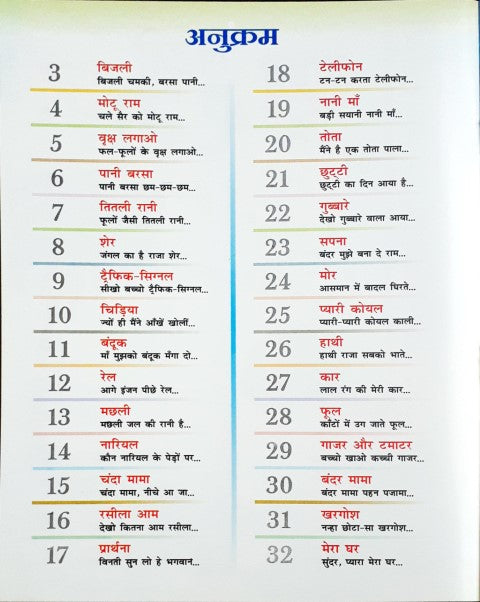 अनुक्रम
3 बिजली
बिजली चमकी, बरसा पानी...
4 मोटू राम
चले सैर को मोटू राम...
5 वृक्ष लगाओ
फल-फूलों के वृक्ष लगाओ...
6 पानी बरसा
पानी बरसा छम-छम-छम...
7 तितली रानी
फूलों जैसी तितली रानी...
8 शेर
जंगल का है राजा शेर...
9 ट्रैफिक-सिग्नल
सीखो बच्चो ट्रैफिक-सिग्नल...
10 चिड़िया
ज्यों ही मैंने आँखें खोलीं...
11 बंदूक
माँ मुझको बंदूक मँगा दो...
12 रेल
आगे इंजन पीछे रेल...
13 मछली
मछली जल की रानी है...
14 नारियल
कौन नारियल के पेड़ों पर...
15 चंदा मामा
चंदा मामा, नीचे आ जा...
16 रसीला आम
देखो कितना आम रसीला...
17 प्रार्थना
विनती सुन लो हे भगवान...
18 टेलीफोन
टन-टन करता टेलीफोन...
19 नानी माँ
बड़ी सयानी नानी माँ...
20 तोता
मैंने है एक तोता पाला...
21 छुट्टी
छुट्टी का दिन आया है...
22 गुब्बारे
देखो गुब्बारे वाला आया...
23 सपना
बंदर मुझे बना दे राम...
24 मोर
आसमान में बादल घिरते...
25 प्यारी कोयल
प्यारी-प्यारी कोयल काली...
26 हाथी
हाथी राजा सबको भाते...
27 कार
लाल रंग की मेरी कार...
28 फूल
काँटों में उग जाते फूल...
29 गाजर और टमाटर
बच्चो खाओ कच्ची गाजर...
30 बंदर मामा
बंदर मामा पहन पजामा...
31 खरगोश
नन्हा छोटा-सा खरगोश...
32 मेरा घर
सुंदर, प्यारा मेरा घर...